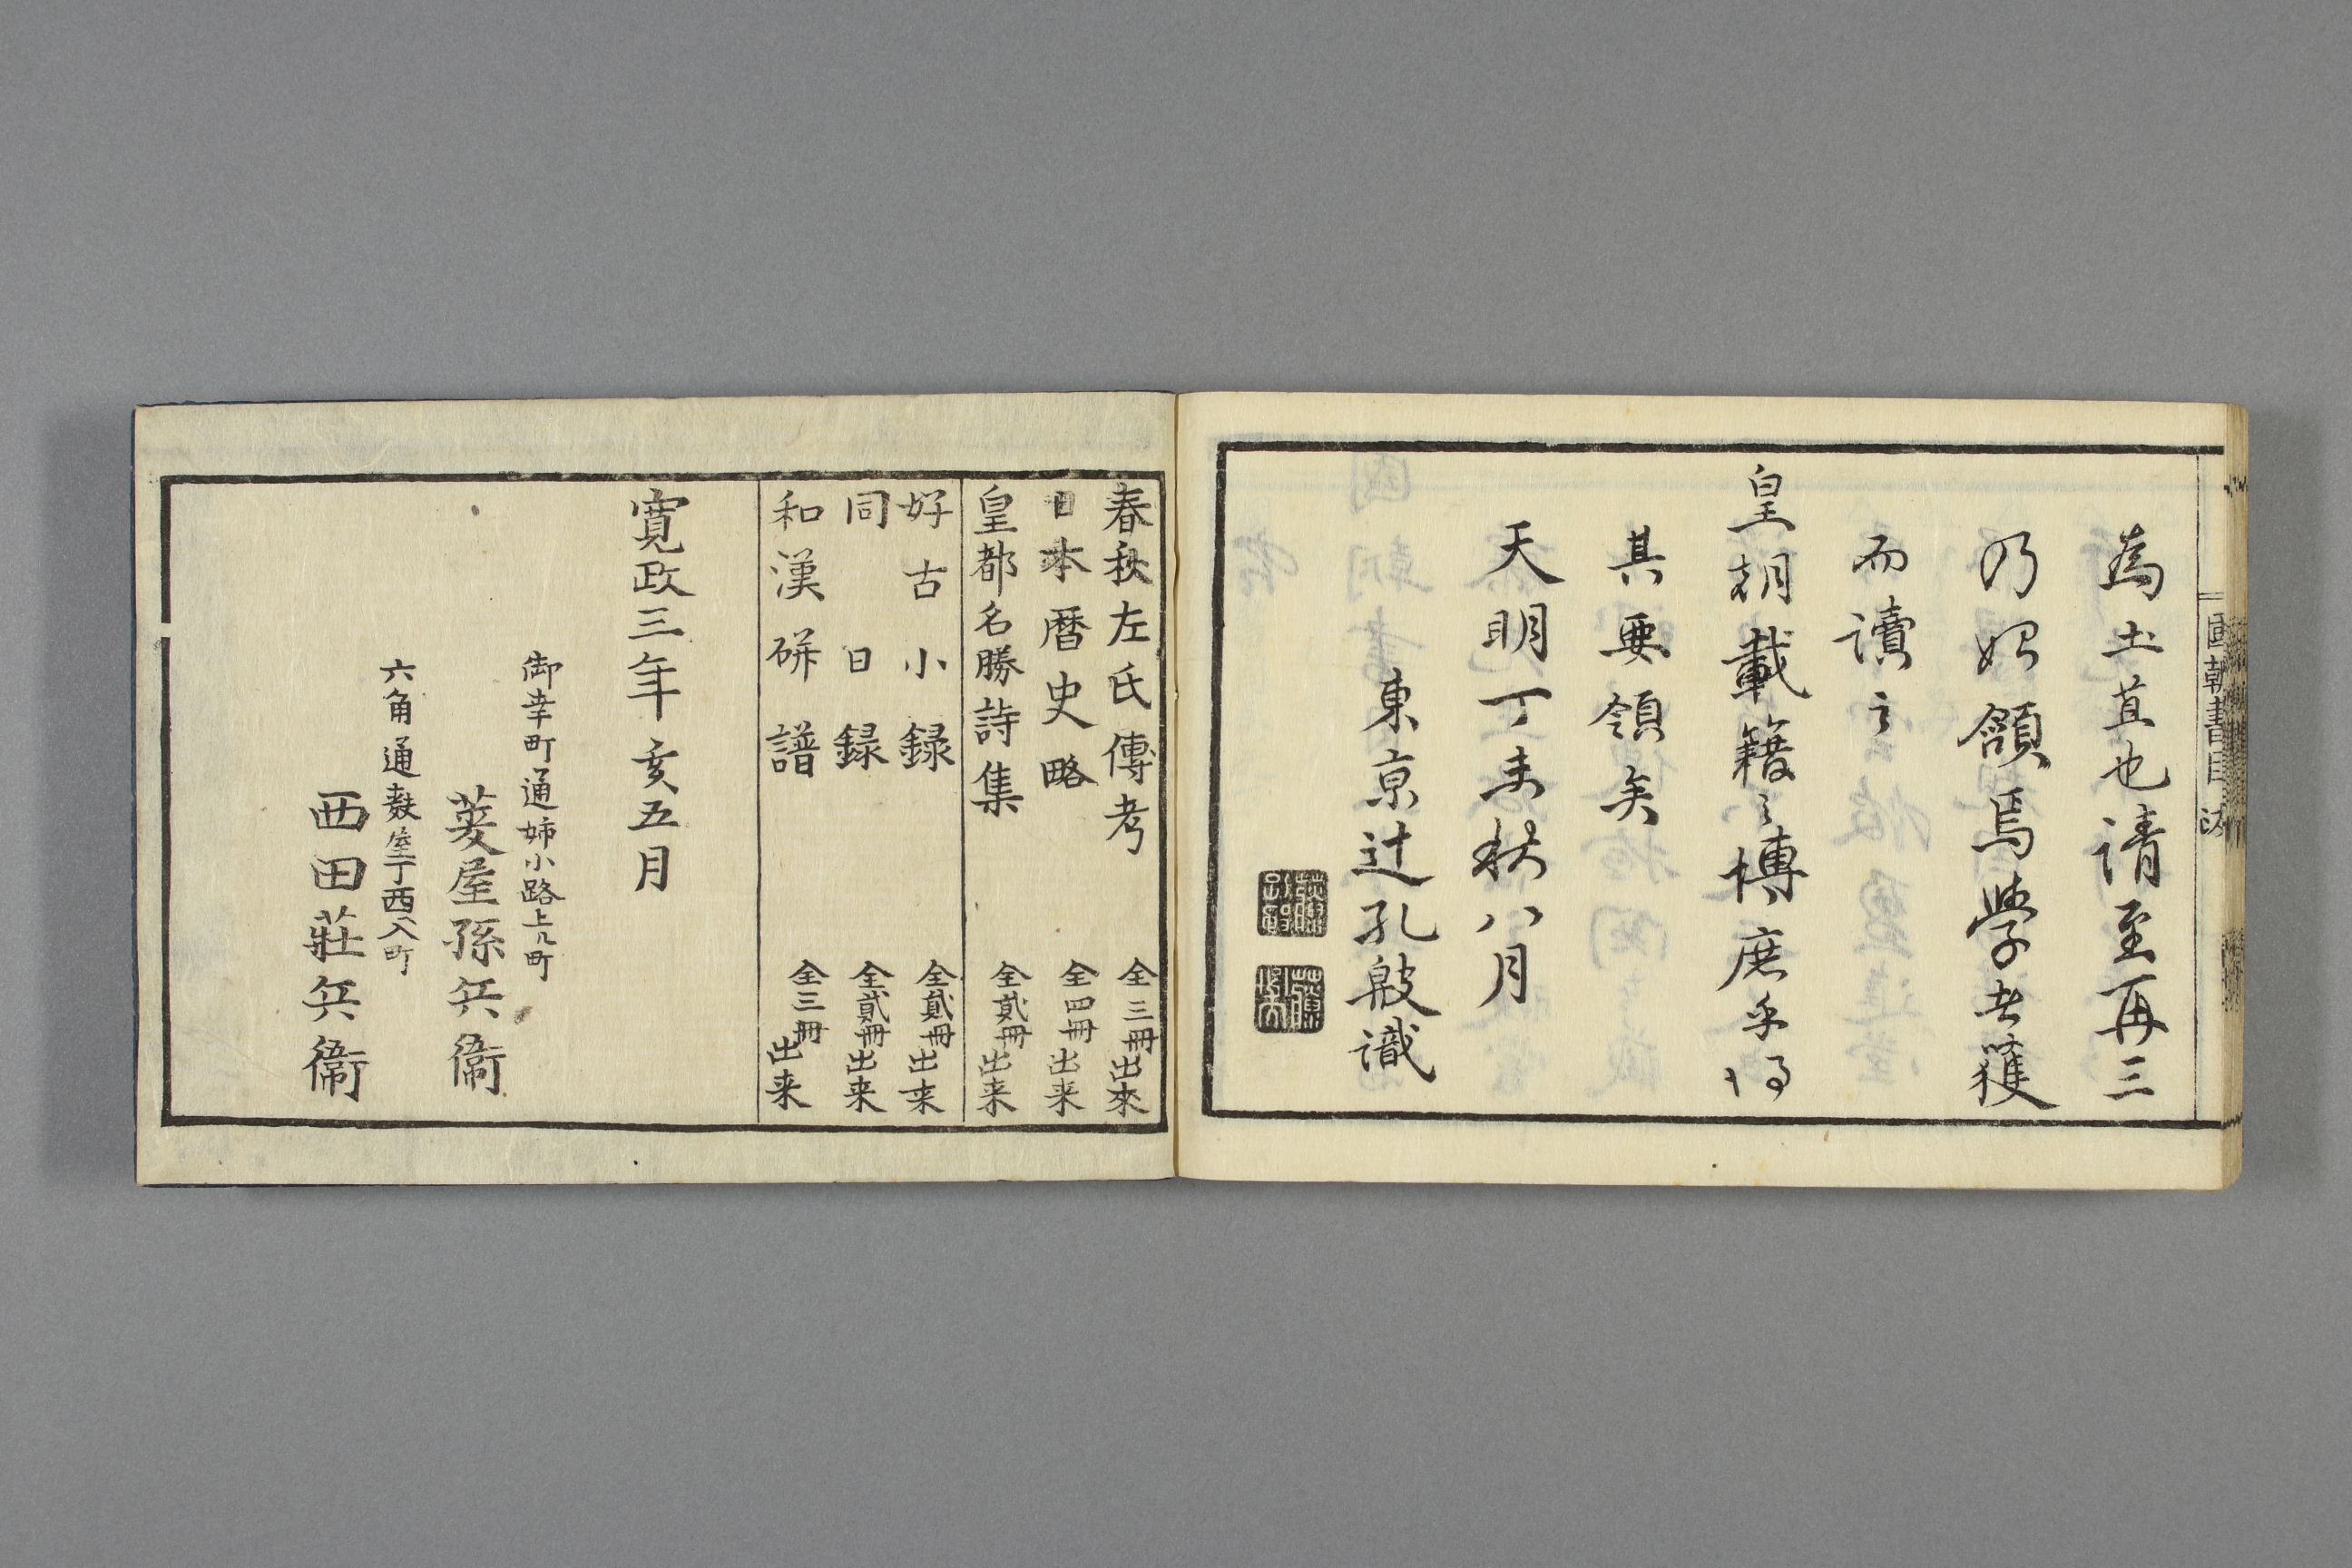 為土苴也請至再三
乃始頷焉學者獲
而讀之
皇朝載籍之博庶乎得
其要領矣
天明丁未秋八月
東京辻孔殷識
國朝書目跋
春秋左氏傳考 全三冊出來
日本暦史略 全四冊出来
皇都名勝詩集 全貳冊出来
好古小録 全貳冊出来
同日録 全貳冊出来
和漢硏譜 全三冊出来
寛政三年亥五月
御幸町通姉小路上ル町
菱屋孫兵衞
六角通麩屋丁西入町
西田莊兵衞